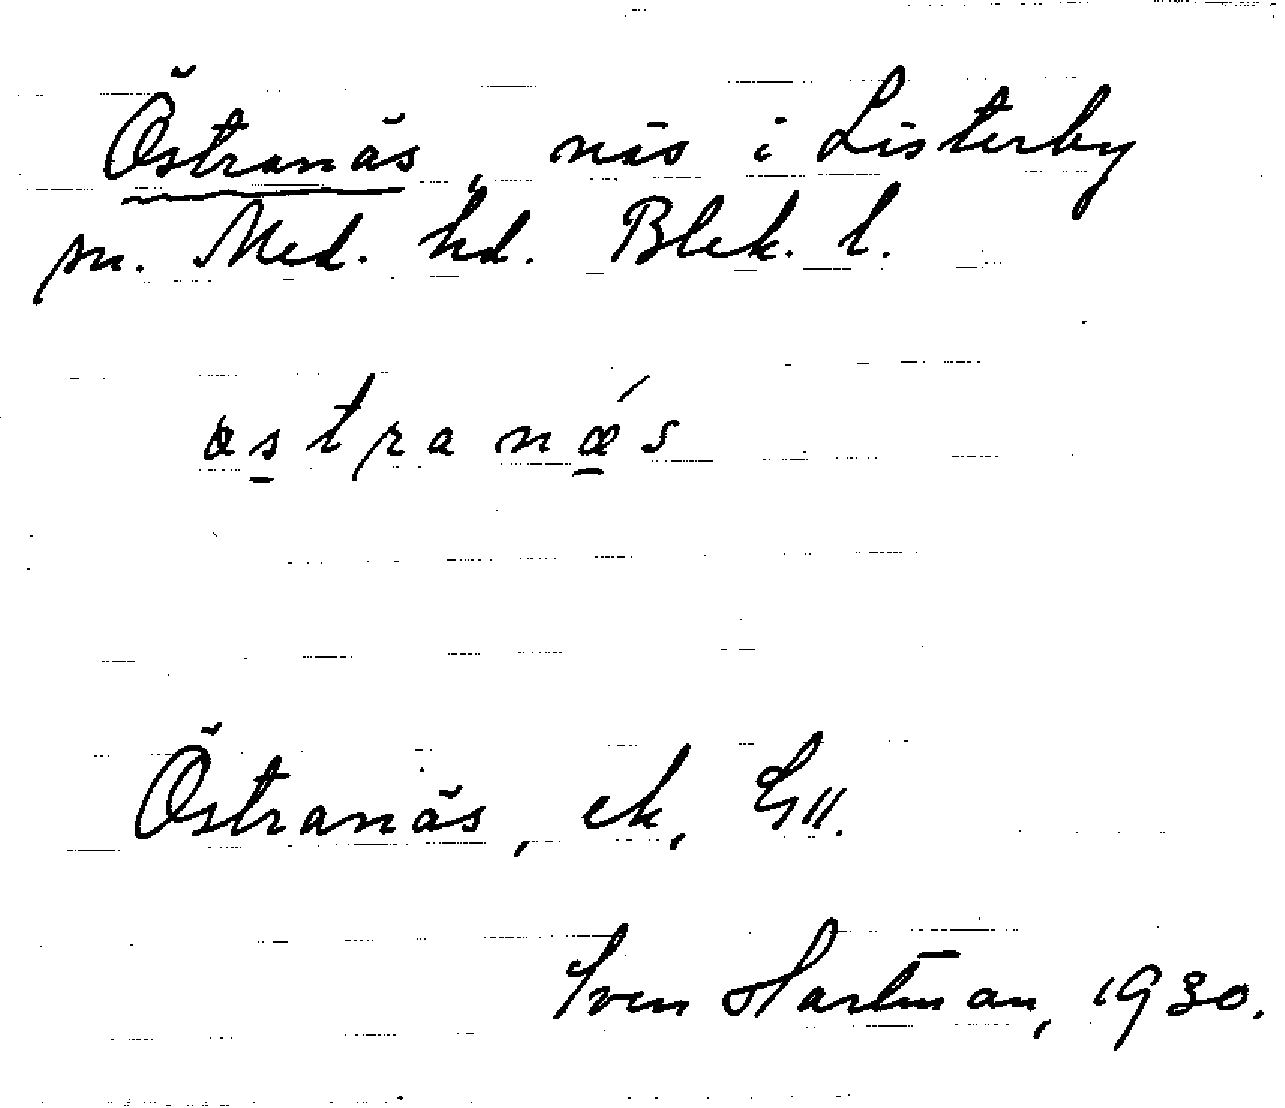 Östranäs, näs i Listerby
sn. Med. hd. Blek. l.
östranǽs
Östranäs, ek,
Sven Hartman, 1930.